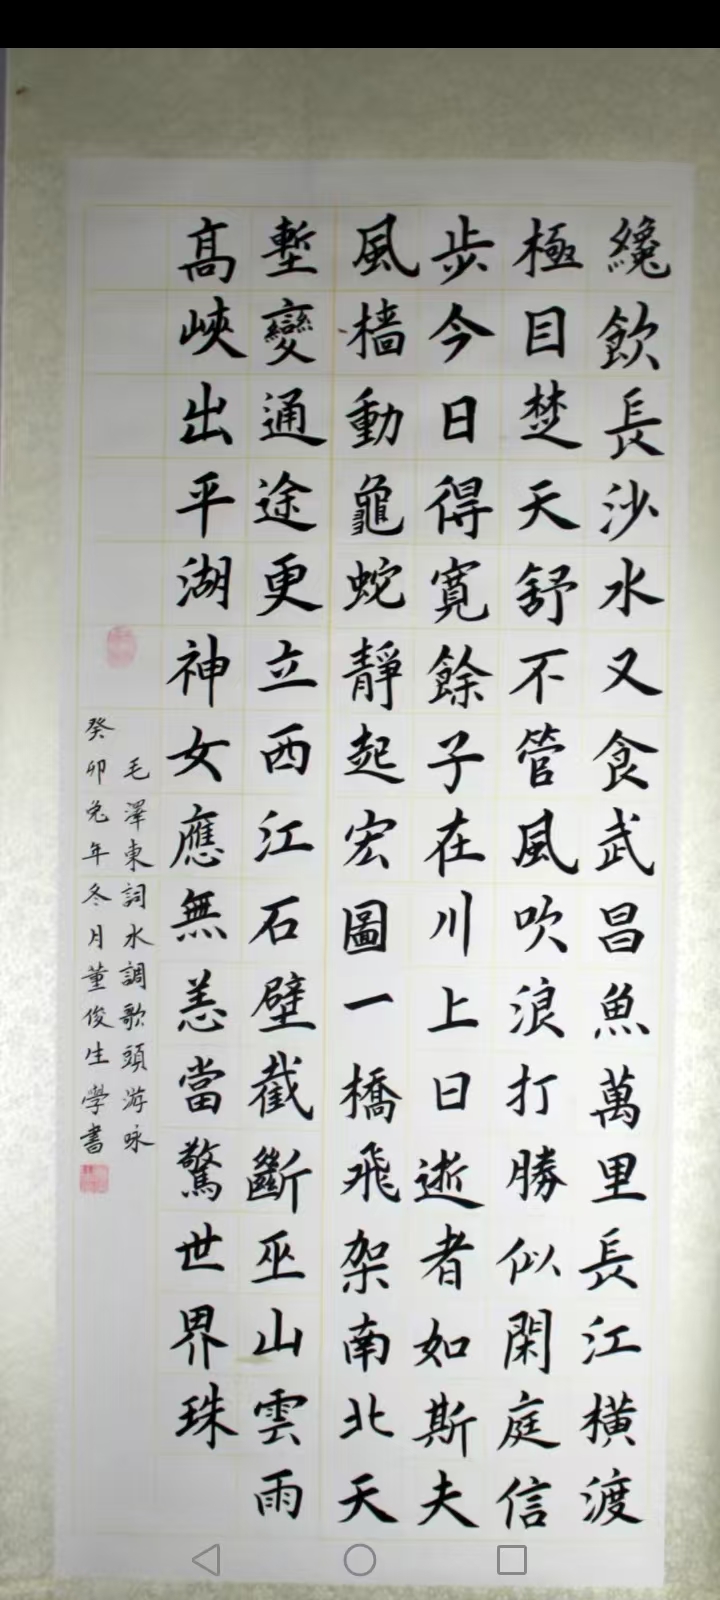 纔飲長沙水又食武昌魚萬里長江橫渡
極目楚天舒不管風吹浪打勝似閑庭信
步今日得寬餘子在川上曰逝者如斯夫
風檣動龜蛇靜起宏圖一橋飛架南北天
塹變通途更立西江石壁截斷巫山雲雨
高峽出平湖神女應無恙當驚世界珠
毛澤東詞水調歌頭游咏
癸卯兔年冬月董俊生學書